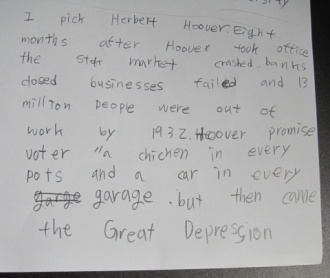 I pick Herbert Hoover. Eight
months after Hoover took office
the stok market crashed. banks
closed businesses failed and 13
million people were out of
work by 1932. Hoover promise
voter "a chicken in every
pots and a car in every
garage. but then came
the Great Depression